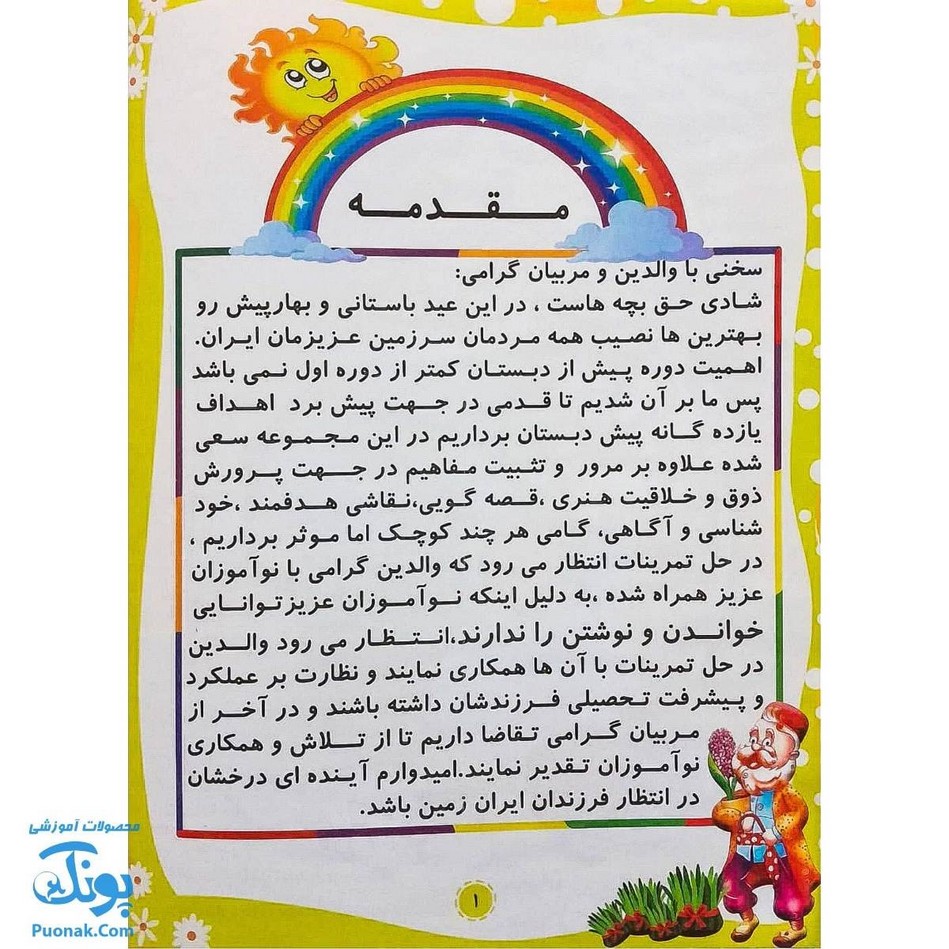 مقدمه
سخنی با والدین و مربیان گرامی:
شادی حق بچه هاست ، در این عید باستانی و بهارپیش رو
بهترین ها نصیب همه مردمان سرزمین عزیزمان ایران.
اهمیت دوره پیش از دبستان کمتر از دوره اول نمی باشد
پس ما بر آن شدیم تا قدمی در جهت پیش برد اهداف
یازده گانه پیش دبستان برداریم در این مجموعه سعی
شده علاوه بر مرور و تثبیت مفاهیم در جهت پرورش
ذوق و خلاقیت هنری ،قصه گویی،نقاشی هدفمند ،خود
شناسی و آگاهی، گامی هر چند کوچک اما موثر برداریم ،
در حل تمرینات انتظار می رود که والدین گرامی با نوآموزان
عزیز همراه شده ،به دلیل اینکه نوآموزان عزیزتوانایی
خواندن و نوشتن را ندارند،انتظار می رود والدین
در حل تمرینات با آن ها همکاری نمایند و نظارت بر عملکرد
و پیشرفت تحصیلی فرزندشان داشته باشند و در آخر از
مربیان گرامی تقاضا داریم تا از تلاش و همکاری
نوآموزان تقدیر نمایند.امیدوارم آینده ای درخشان
در انتظار فرزندان ایران زمین باشد.
۱
محصولات آموزشی
پونک
Puonak.Com